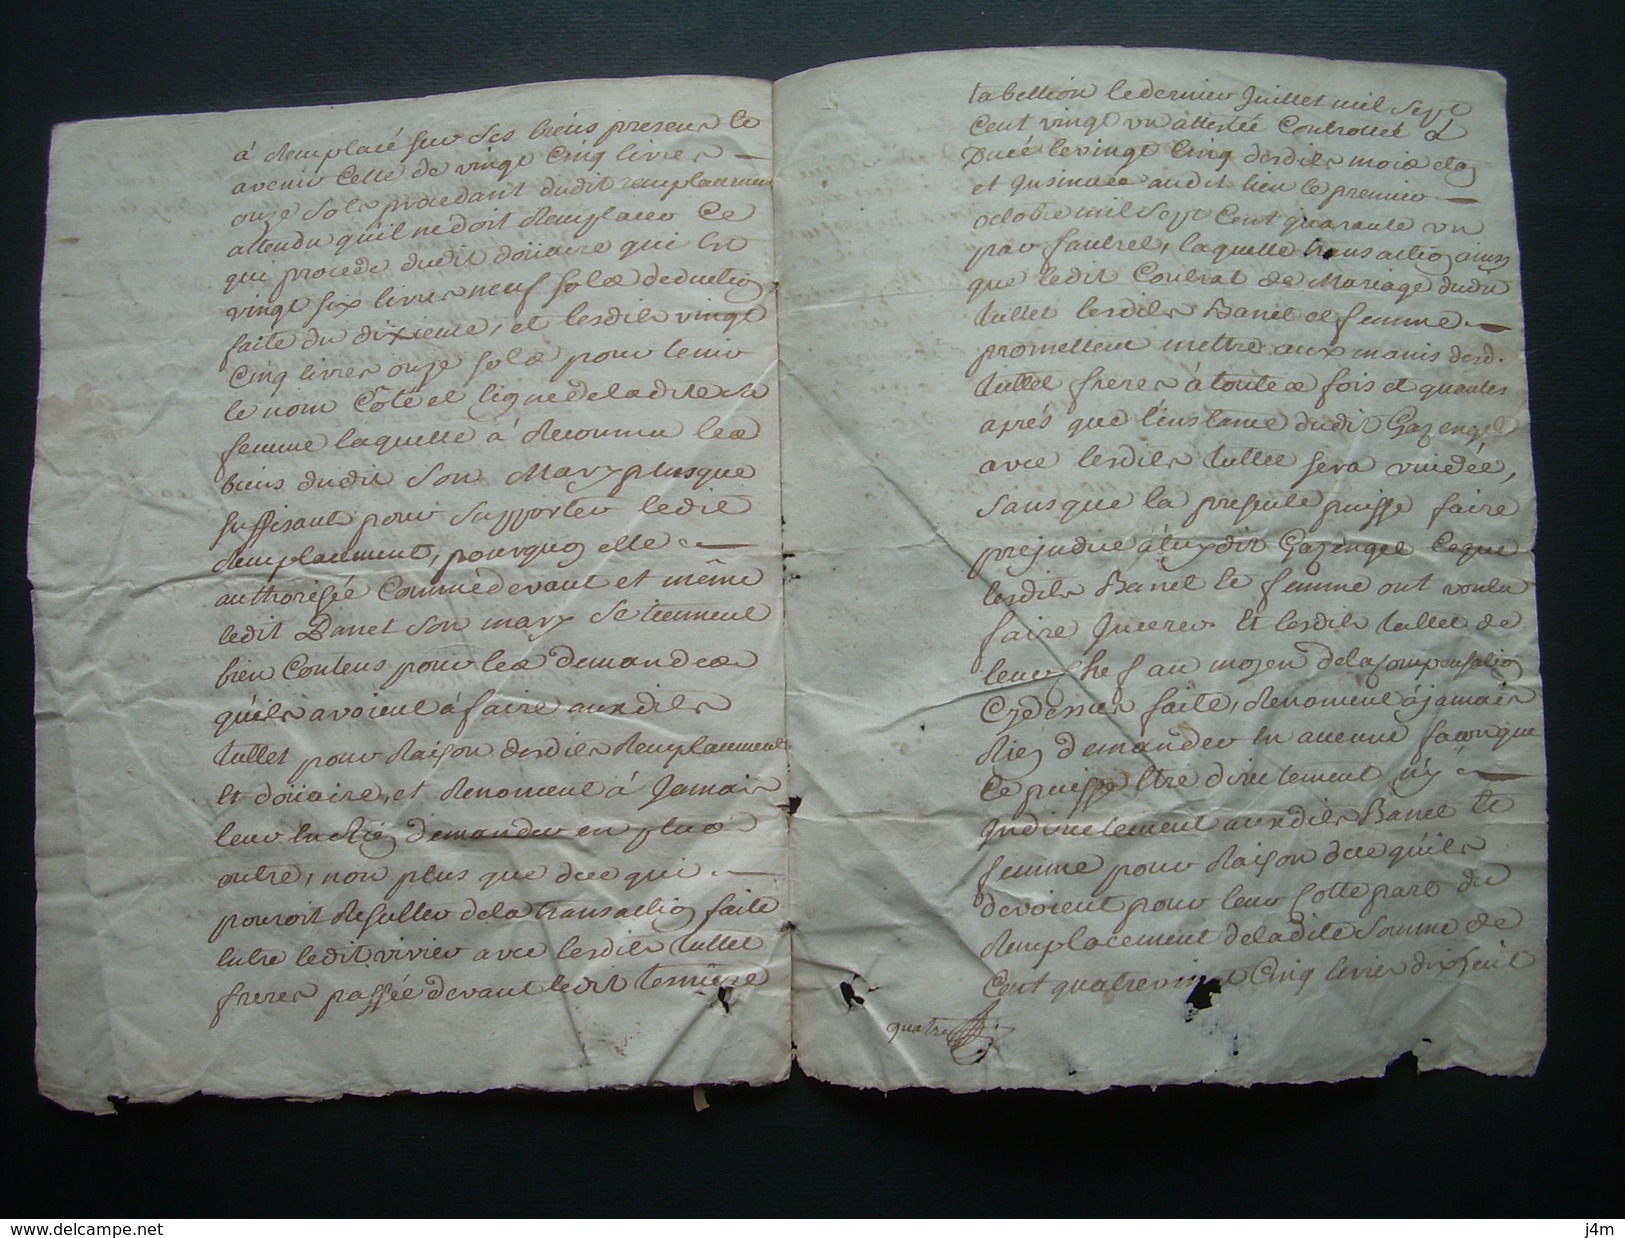 à Remplacé sur Ses biens presens Le
avenir Cette de vingt Cinq livres
onze Sols procedant dudit remplacemen
attendu qu'il ne doit Remplacer Ce
qui procede dudit doüaire qui Est
vingt six livres neuf sols deduction
faite du dixieme, et lesdits vingt
Cinq livres onze sols pour tenir
le nom Côté et ligne de la dite
femme laquelle à Reconnu les
biens dudit Son Mary plusque
suffisants pour supporter ledit
Remplacement, pourquoy elle
authorisée Comme devant et même
ledit Banel Son mary Se tiennent
bien Contens pour les demandes
qu'ils avoient à faire auxdits
tullet pour Raison desdits Remplacement
Et doüaire, et Renoncent à Jamais
leur En Rien demander en plus
outre, non plus que de ce qui
pouroit Resulter de la transaction faite
Entre ledit vivier avec lesdits tullet
freres passée devant ledit
tabellion le dernier Juillet mil Sept
Cent vingt un attestée Controllée à
Ducé le vingt Cinq desdits mois et an
et Insinuée audit lieu le premier
octobre mil Sept Cent quarante un
par fautrel, laquelle transaction ainsy
que ledit Contrat de Mariage dudit
tullet lesdits Banel et femme
promettent mettre aux mains desd.
tullet freres à toutes fois et quantes
aprés que l'instance dudit Gazengel
avec lesdits tullet sera vuidée,
sans que la presente puisse faire
prejudice à luy dit Gazengel Ce que
lesdits Banel Et femme ont voulu
faire Inserer Et lesdits tullet de
leur chef au moyen de la compensation
Cy dessus faite, Renoncent à jamais
Rien demander En aucune facon que
Ce puisse Etre directement n'y
Indirectement auxdits Banel Et
femme pour Raison de ce qu'ils
devoient pour leur Cotte part du
Remplacement de la dite Somme de
Cent quatrevingt Cinq livres dix huit
quatre
www.delcampe.net
j4m